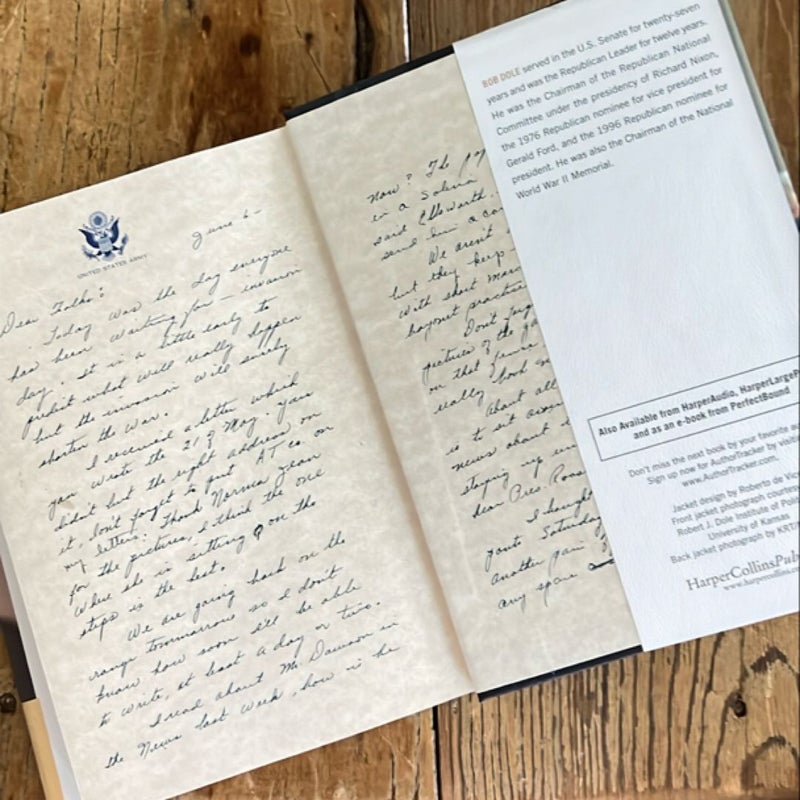 UNITED STATES ARMY
June 6 –
Dear Folks:
Today was the day everyone
has been waiting for – invasion
day. It is a little early to
predict what will really happen
but the invasion will surely
shorten the war.
I received a letter which
you wrote the 21 of May. you
didn't put the right address on
it, don't forget to put AT co. on
my letters. Thank Norma Jean
for the pictures, I think the one
where she is sitting on the
steps is the best.
We are going back on the
range tommorrow so I don't
know how soon I'll be able
to write, at least a day or two.
I read about Mr Dawson in
the News last week, how is he
now? The
in a Salina
said Ellsworth.
send him a
We aren't
but they keep
with short
bayonet practice
Don't
pictures of the
on that
really look
About all
is to sit
news about
staying up
dear Pres
I thought
pants Saturday
another pair
any spare
BOB DOLE served in the U.S. Senate for twenty-seven
years and was the Republican Leader for twelve years.
He was the Chairman of the Republican National
Committee under the presidency of Richard Nixon,
the 1976 Republican nominee for vice president for
Gerald Ford, and the 1996 Republican nominee for
president. He was also the Chairman of the National
World War II Memorial.
Also Available from HarperAudio, HarperLargeP
and as an e-book from PerfectBound
Don't miss the next book by your favorite au
Sign up now for AuthorTracker by visiti
www.AuthorTracker.com.
Jacket design by Roberto de Vic
Front jacket photograph courtesy
Robert J. Dole Institute of Poli
University of Kansas
Back jacket photograph by KRT/
HarperCollinsPub
www.harpercollins.